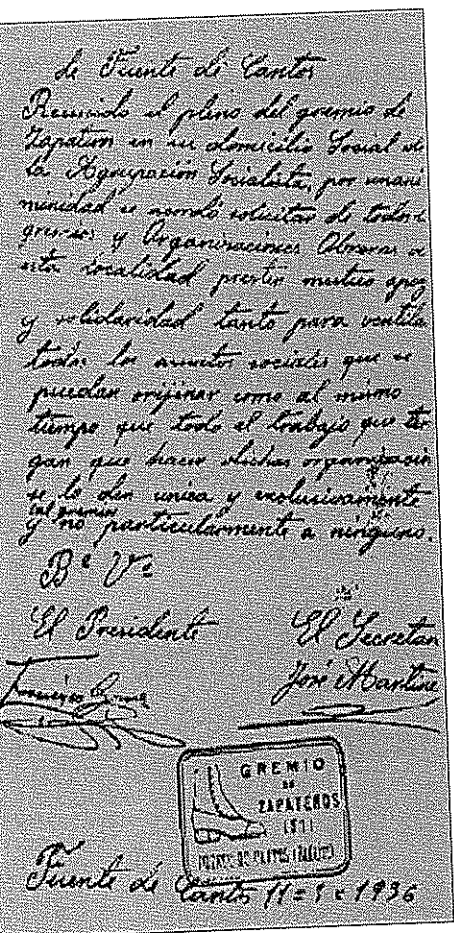 de Fuente de Cantos
Reunido el pleno del gremio de
Zapateros en su domicilio Social de
la Agrupación Socialista, por unani
minidad se acordó solicitar de todos
gremios y Organizaciones Obreras de
esta localidad presten mutuo apoy
y solidaridad tanto para ventila
todos los asuntos sociales que se
puedan orijinar como al mismo
tiempo que todo el trabajo que ten
gan que hacer dichas organizacion
se lo den unica y exclusivamente
al gremio
y no particularmente a ninguno.
Bº Vº
El Presidente El Secretar
José Martine
GREMIO
DE
ZAPATEROS
FUENTE DE CANTOS (BADAJOZ)
Fuente de Cantos 1936